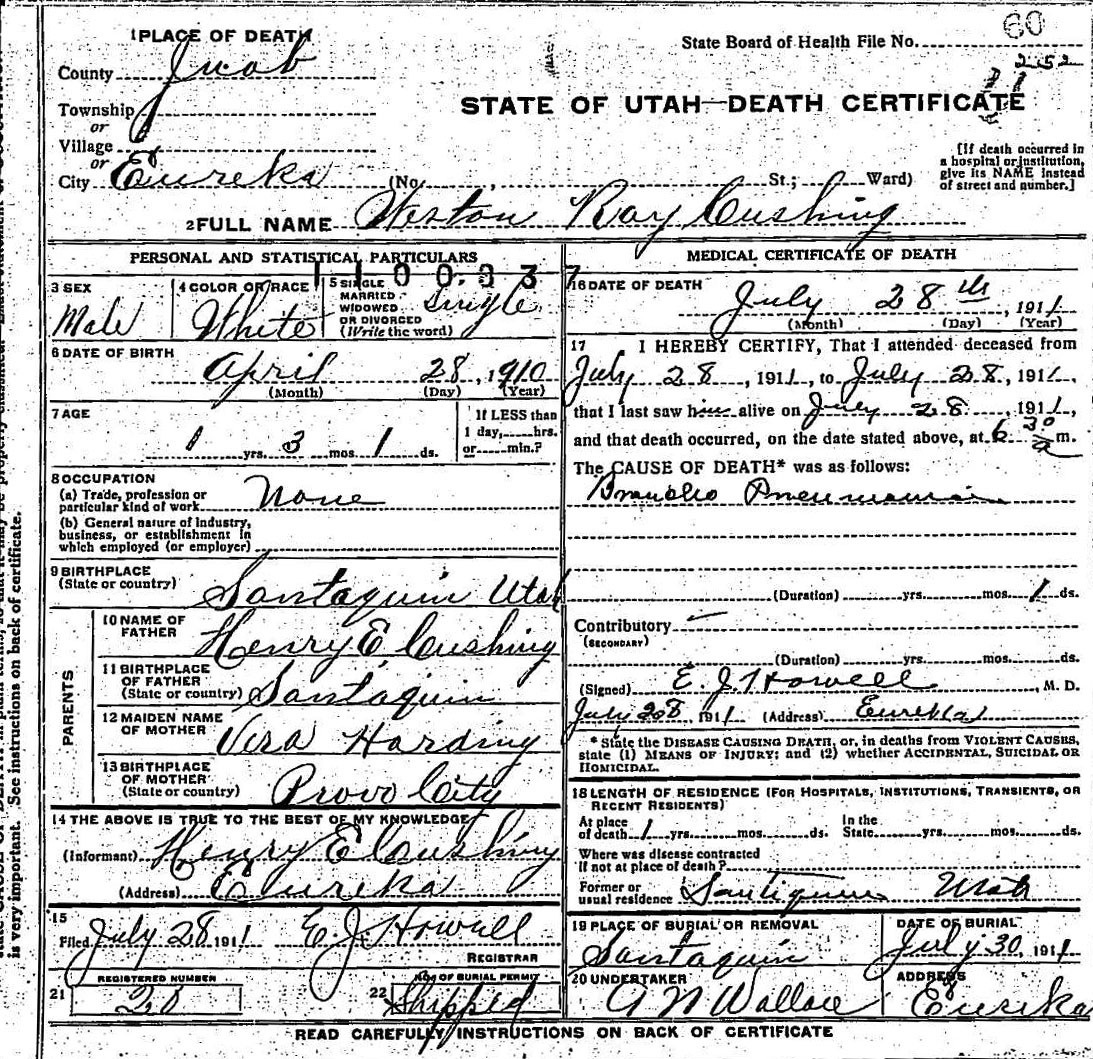 60
1 PLACE OF DEATH
State Board of Health File No.
252
County Juab
21
STATE OF UTAH—DEATH CERTIFICATE
Township
or
Village
or
City Eureka (No. , St.; Ward)
[If death occurred in
a hospital or institution,
give its NAME instead
of street and number.]
2 FULL NAME Weston Ray Cushing
PERSONAL AND STATISTICAL PARTICULARS
1100337
3 SEX
Male
4 COLOR OR RACE
White
5 SINGLE
MARRIED
WIDOWED
OR DIVORCED
(Write the word)
Single
6 DATE OF BIRTH
April 28, 1910
(Month) (Day) (Year)
7 AGE
1 yrs. 3 mos. 1 ds.
If LESS than
1 day, hrs.
or min.?
8 OCCUPATION
(a) Trade, profession or
particular kind of work None
(b) General nature of industry,
business, or establishment in
which employed (or employer)
9 BIRTHPLACE
(State or country) Santaquin Utah
PARENTS
10 NAME OF
FATHER Henry E Cushing
11 BIRTHPLACE
OF FATHER
(State or country) Santaquin
12 MAIDEN NAME
OF MOTHER Vera Harding
13 BIRTHPLACE
OF MOTHER
(State or country) Provo City
14 THE ABOVE IS TRUE TO THE BEST OF MY KNOWLEDGE
(Informant) Henry E Cushing
(Address) Eureka
15
Filed July 28 1911 E J Howell
REGISTRAR
REGISTERED NUMBER
21 28
NO. OF BURIAL PERMIT
22 Shipped
MEDICAL CERTIFICATE OF DEATH
16 DATE OF DEATH
July 28th, 1911
(Month) (Day) (Year)
17 I HEREBY CERTIFY, That I attended deceased from
July 28, 1911, to July 28, 1911,
that I last saw him alive on July 28, 1911,
and that death occurred, on the date stated above, at 6 30 a m.
The CAUSE OF DEATH* was as follows:
Broncho Pneumonia
(Duration) yrs. mos. 1 ds.
Contributory
(SECONDARY)
(Duration) yrs. mos. ds.
(Signed) E. J. Howell, M. D.
July 28 1911 (Address) Eureka
* State the DISEASE CAUSING DEATH, or, in deaths from VIOLENT CAUSES,
state (1) MEANS OF INJURY; and (2) whether ACCIDENTAL, SUICIDAL OR
HOMICIDAL.
18 LENGTH OF RESIDENCE (FOR HOSPITALS, INSTITUTIONS, TRANSIENTS, OR
RECENT RESIDENTS)
At place
of death 1 yrs. mos. ds.
In the
State yrs. mos. ds.
Where was disease contracted
if not at place of death?
Former or
usual residence Santiquin Utah
19 PLACE OF BURIAL OR REMOVAL
Santaquin
DATE OF BURIAL
July 30, 1911
20 UNDERTAKER
A N Wallace
ADDRESS
Eureka
READ CAREFULLY INSTRUCTIONS ON BACK OF CERTIFICATE
is very important. See instructions on back of certificate.